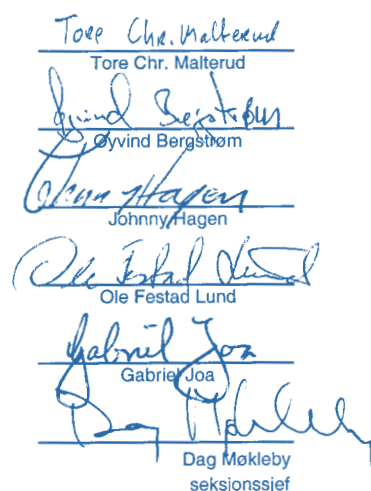 Tore Chr. Malterud
Tore Chr. Malterud
Øyvind Bergstrøm
Øyvind Bergstrøm
Johnny Hagen
Johnny Hagen
Ole Festad Lund
Ole Festad Lund
Gabriel Joa
Gabriel Joa
Dag Møkleby
Dag Møkleby
seksjonssief